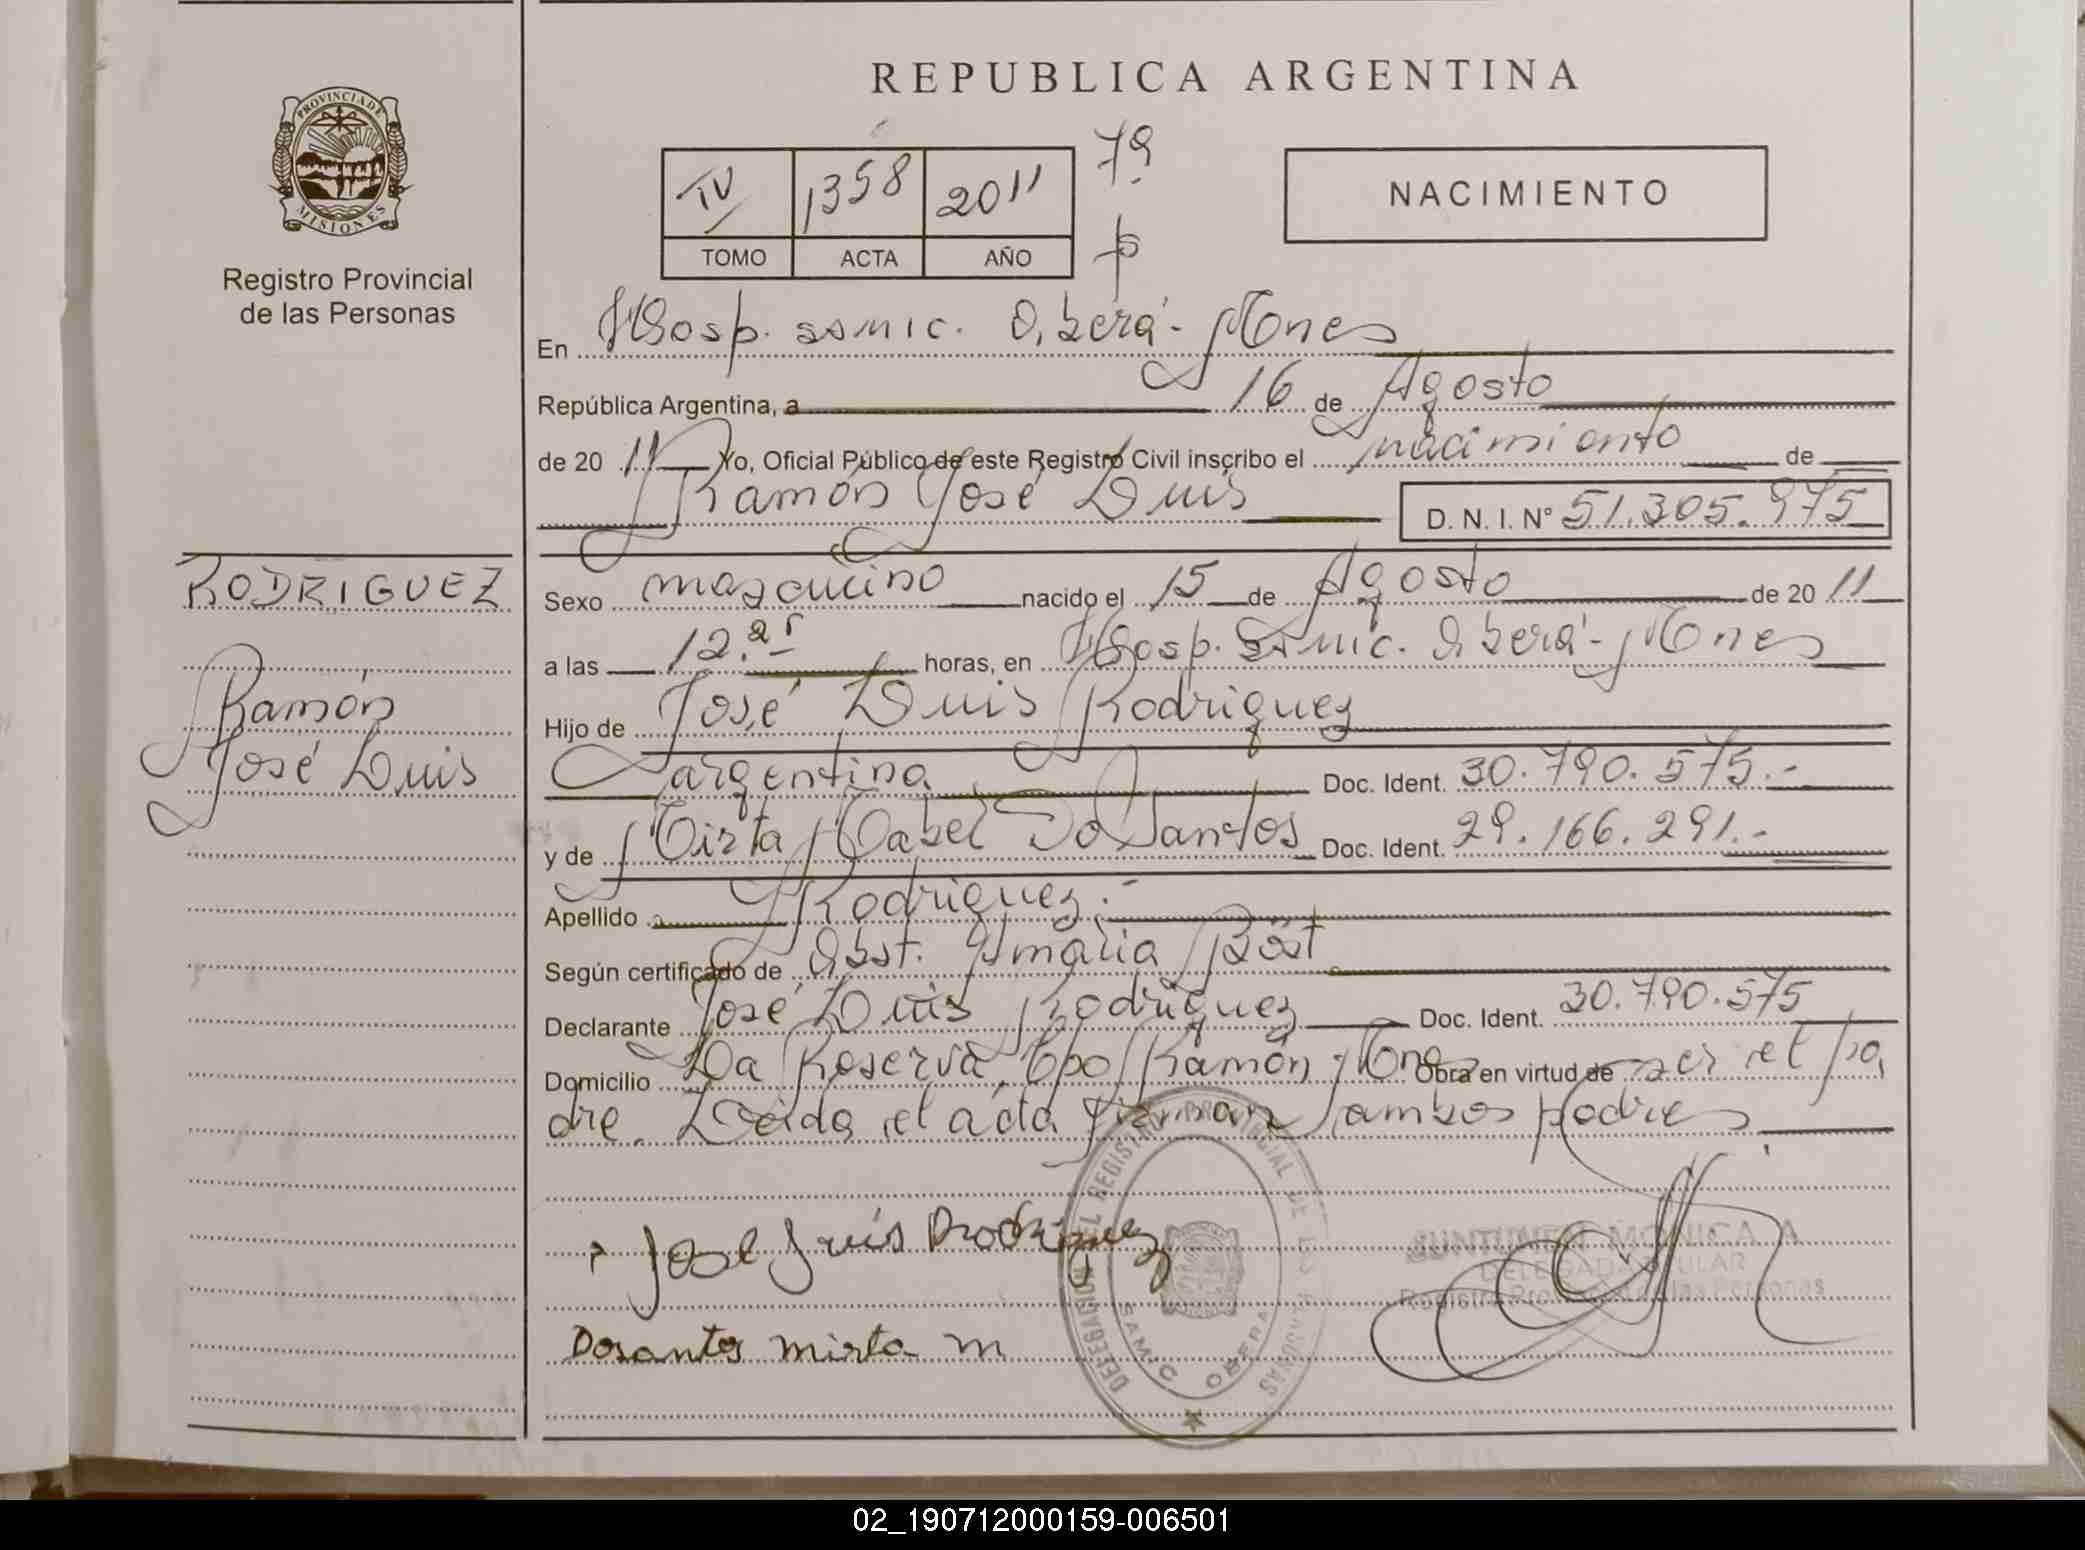 REPUBLICA ARGENTINA
PROVINCIA DE
MISIONES
Registro Provincial
de las Personas
IV 1358 2011 79
TOMO ACTA AÑO
NACIMIENTO
En Hosp. samic. Oberá - Mones
República Argentina, a 16 de Agosto
de 20 11 Yo, Oficial Público de este Registro Civil inscribo el nacimiento de
Ramón José Luis D. N. I. N° 51.305.975
RODRIGUEZ
Ramón
José Luis
Sexo masculino nacido el 15 de Agosto de 20 11
a las 12. horas, en Hosp. Samic. Oberá - Mones
Hijo de José Luis Rodriguez
argentina Doc. Ident. 30.790.575.-
y de Mirta Mabel Do Santos Doc. Ident. 29.166.291.-
Apellido Rodriguez.-
Según certificado de Obst. Amalia
Declarante José Luis Rodriguez Doc. Ident. 30.790.575
Domicilio La Reserva Cpo Ramón Mones Obra en virtud de ser el pa
dre. Leida el acta firman ambos padres.
José Luis Rodriguez
Dosantos mirta m
DELEGACION DEL REGISTRO PROVINCIAL DE LAS PERSONAS
SAMIC OBERA
MONICA A
DELEGADA TITULAR
Registro Provincial de las Personas
02_190712000159-006501